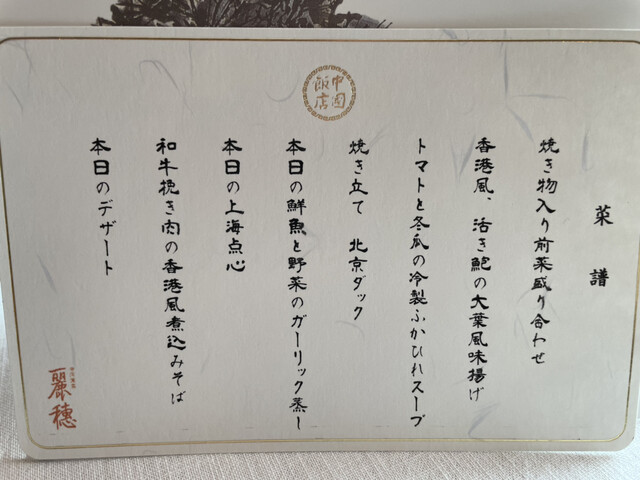 中國飯店
菜譜
焼き物入り前菜盛り合わせ
香港風、活き鮑の大葉風味揚げ
トマトと冬瓜の冷製ふかひれスープ
焼き立て 北京ダック
本日の鮮魚と野菜のガーリック蒸し
本日の上海点心
和牛挽き肉の香港風煮込みそば
本日のデザート
麗穂